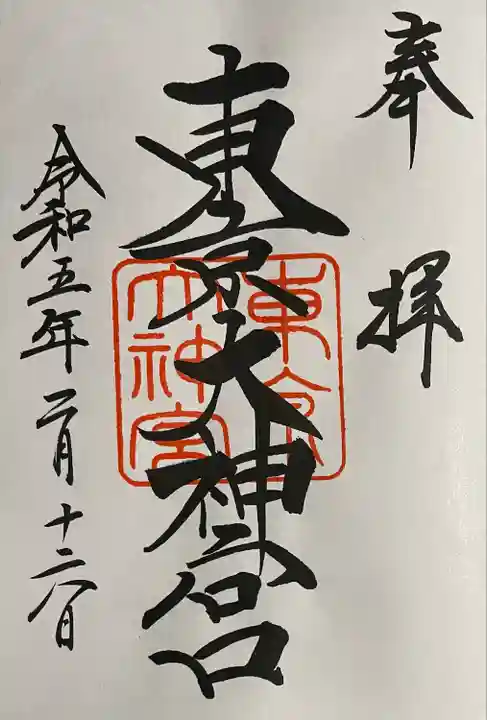 奉拝
東京大神宮
東京
大神宮
令和五年二月十二日